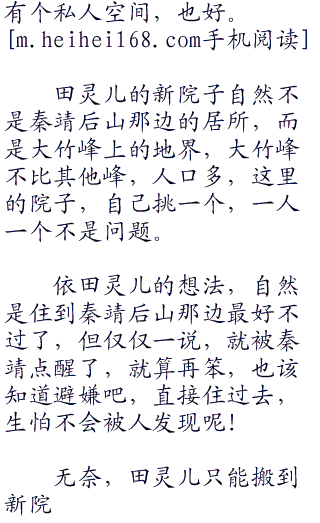 有个私人空间，也好。
[m.heihei168.com手机阅读]
田灵儿的新院子自然不
是秦靖后山那边的居所，而
是大竹峰上的地界，大竹峰
不比其他峰，人口多，这里
的院子，自己挑一个，一人
一个不是问题。
依田灵儿的想法，自然
是住到秦靖后山那边最好不
过了，但仅仅一说，就被秦
靖点醒了，就算再笨，也该
知道避嫌吧，直接住过去，
生怕不会被人发现呢！
无奈，田灵儿只能搬到
新院